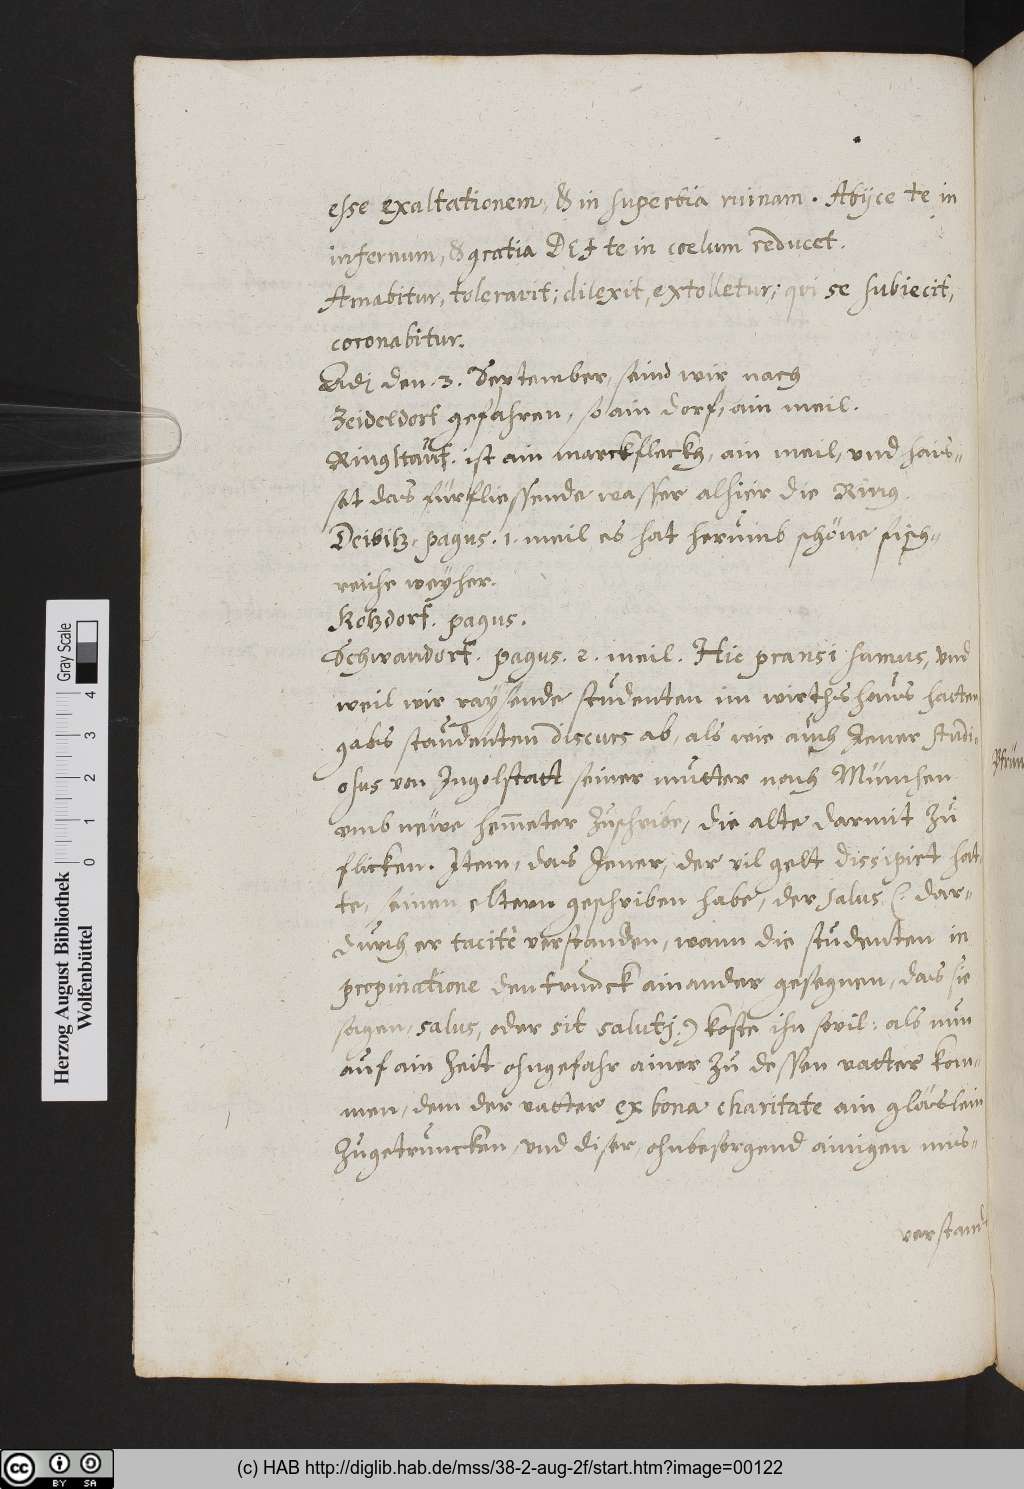 esse exaltationem, & in superbia ruinam. Abijce te in
infernum, & gratia DEI te in coelum reducet.
Amabitur, toleravit; dilexit, extolletur; qui se subiecit,
coronabitur.
Adj den .3. September, seind wir nach
Zeideldorf gefahren, so ain dorf, ain meil.
Ringstauf. ist ain marckfleckh, ain meil, und hais-
set das fürfliessende wasser alhier die Ring.
Deibitz, pagus. 1. meil es hat herumb schöne fisch-
reiche weyher.
Kotzdorf. pagus.
Schwandorf. pagus. 2. meil. Hic pransi sumus, und
weil wir raysende studenten im wirthshaus hatten
gabs studenten discurs ab, als wie auch Jener studi-
osus von Ingolstatt seiner mutter nach München
umb neüe hem̄eter zuschribe, die alte darmit zu
flicken. Item, das Jener, der vil gelt dissipiert hat-
te, seinen eltern geschriben habe, der salus, (: dar-
durch er tacitè verstanden, wann die studenten in
propinatione den trunck ainander gesegnen, das sie
sagen, salus, oder sit salutj :) koste ihn sovil: als nun
auf ain zeit ohngefahr ainer zu dessen vatter kom-
men, dem der vatter ex bona charitate ain gläslein
zugetruncken, und diser, ohnbesorgend ainigen mis-
verstand
Pfrün
Herzog August Bibliothek
Wolfenbüttel
0 1 2 3 4
Gray Scale
cc BY SA
(c) HAB http://diglib.hab.de/mss/38-2-aug-2f/start.htm?image=00122